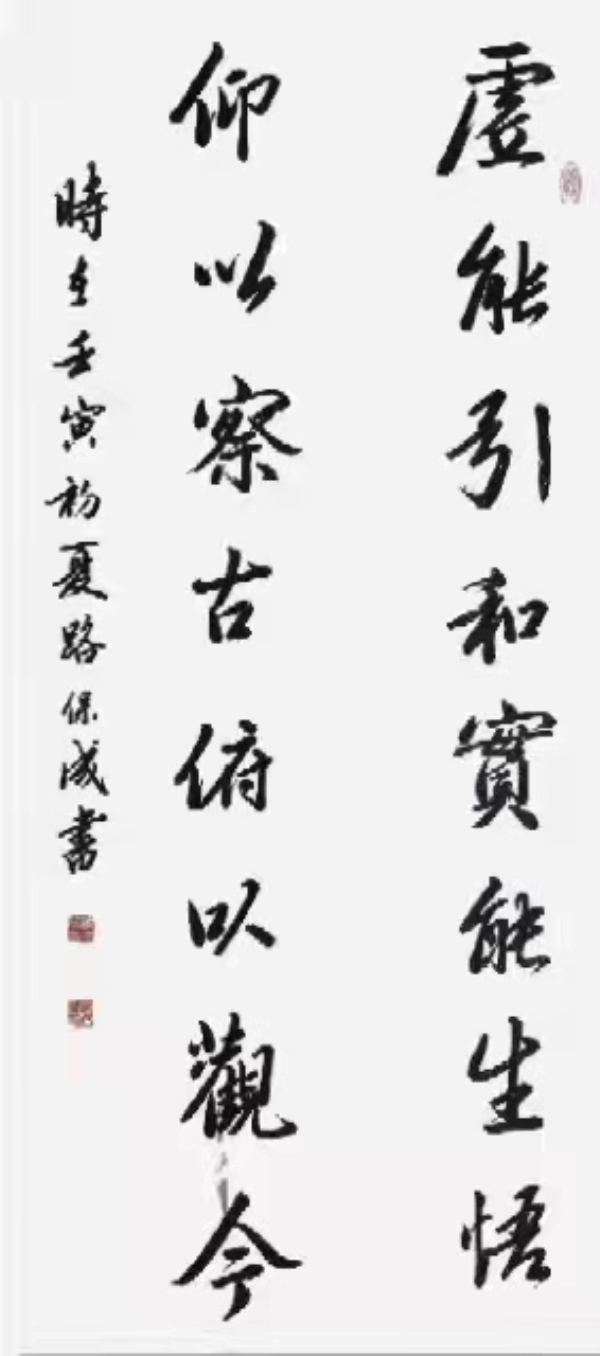 虛能引和實能生悟
仰以察古俯以觀今
時在壬寅初夏路保成書